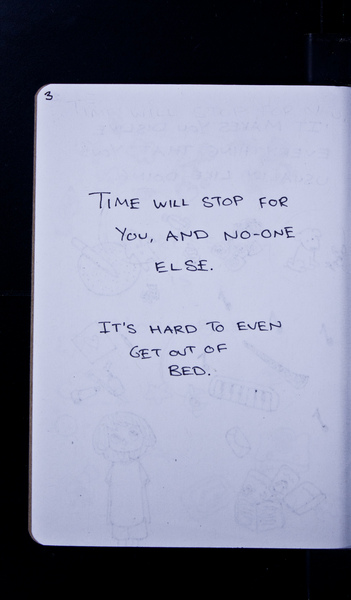 3
TIME WILL STOP FOR
YOU, AND NO-ONE
ELSE.
IT'S HARD TO EVEN
GET OUT OF
BED.